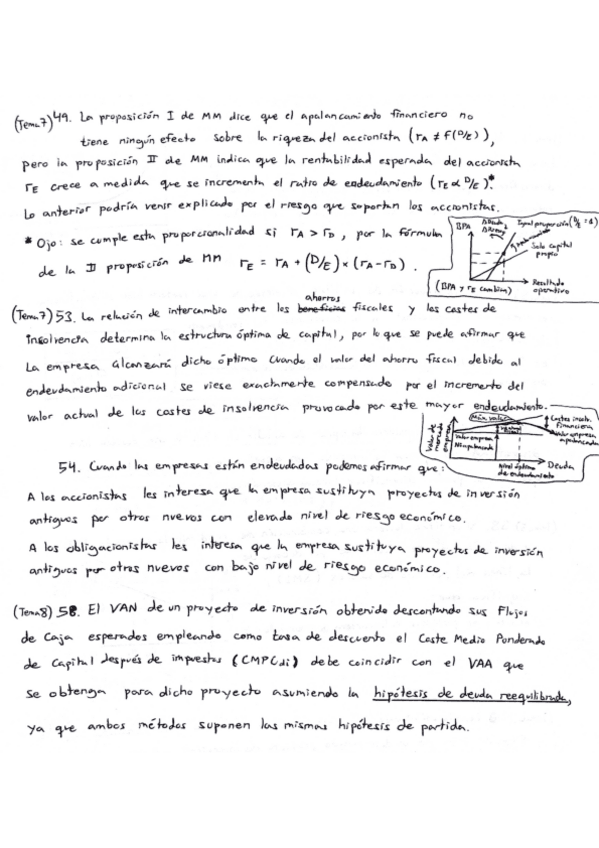 (Tema 7) 49. La proposición I de MM dice que el apalancamiento financiero no
tiene ningún efecto sobre la riqueza del accionista (rA ≠ f(D/E)),
pero la proposición II de MM indica que la rentabilidad esperada del accionista
rE crece a medida que se incrementa el ratio de endeudamiento (rE α D/E).*
Lo anterior podría venir explicado por el riesgo que soportan los accionistas.
* Ojo: se cumple esta proporcionalidad si rA > rD, por la fórmula
de la II proposición de MM rE = rA + (D/E) × (rA - rD).
BPA
Igual proporción (D/E = 1)
Solo capital
propio
Resultado
operativo
(BPA y rE cambian)
(Tema 7) 53. La relación de intercambio entre los beneficios ahorros fiscales y los costes de
insolvencia determina la estructura óptima de capital, por lo que se puede afirmar que
La empresa alcanzará dicho óptimo cuando el valor del ahorro fiscal debido al
endeudamiento adicional se viese exactamente compensado por el incremento del
valor actual de los costes de insolvencia provocado por este mayor endeudamiento.
Máx. valor
Costes insolv.
Financiera
Valor empresa
apalancada
Valor de
mercado
empresa
Valor empresa
No apalancada
Nivel óptimo
de endeudamiento
Deuda
54. Cuando las empresas están endeudadas podemos afirmar que:
A los accionistas les interesa que la empresa sustituya proyectos de inversión
antiguos por otros nuevos con elevado nivel de riesgo económico.
A los obligacionistas les interesa que la empresa sustituya proyectos de inversión
antiguos por otros nuevos con bajo nivel de riesgo económico.
(Tema 8) 58. El VAN de un proyecto de inversión obtenido descontando sus Flujos
de Caja esperados empleando como tasa de descuento el Coste Medio Ponderado
de Capital después de impuestos (CMPCdi) debe coincidir con el VAA que
se obtenga para dicho proyecto asumiendo la hipótesis de deuda reequilibrada,
ya que ambos métodos suponen las mismas hipótesis de partida.